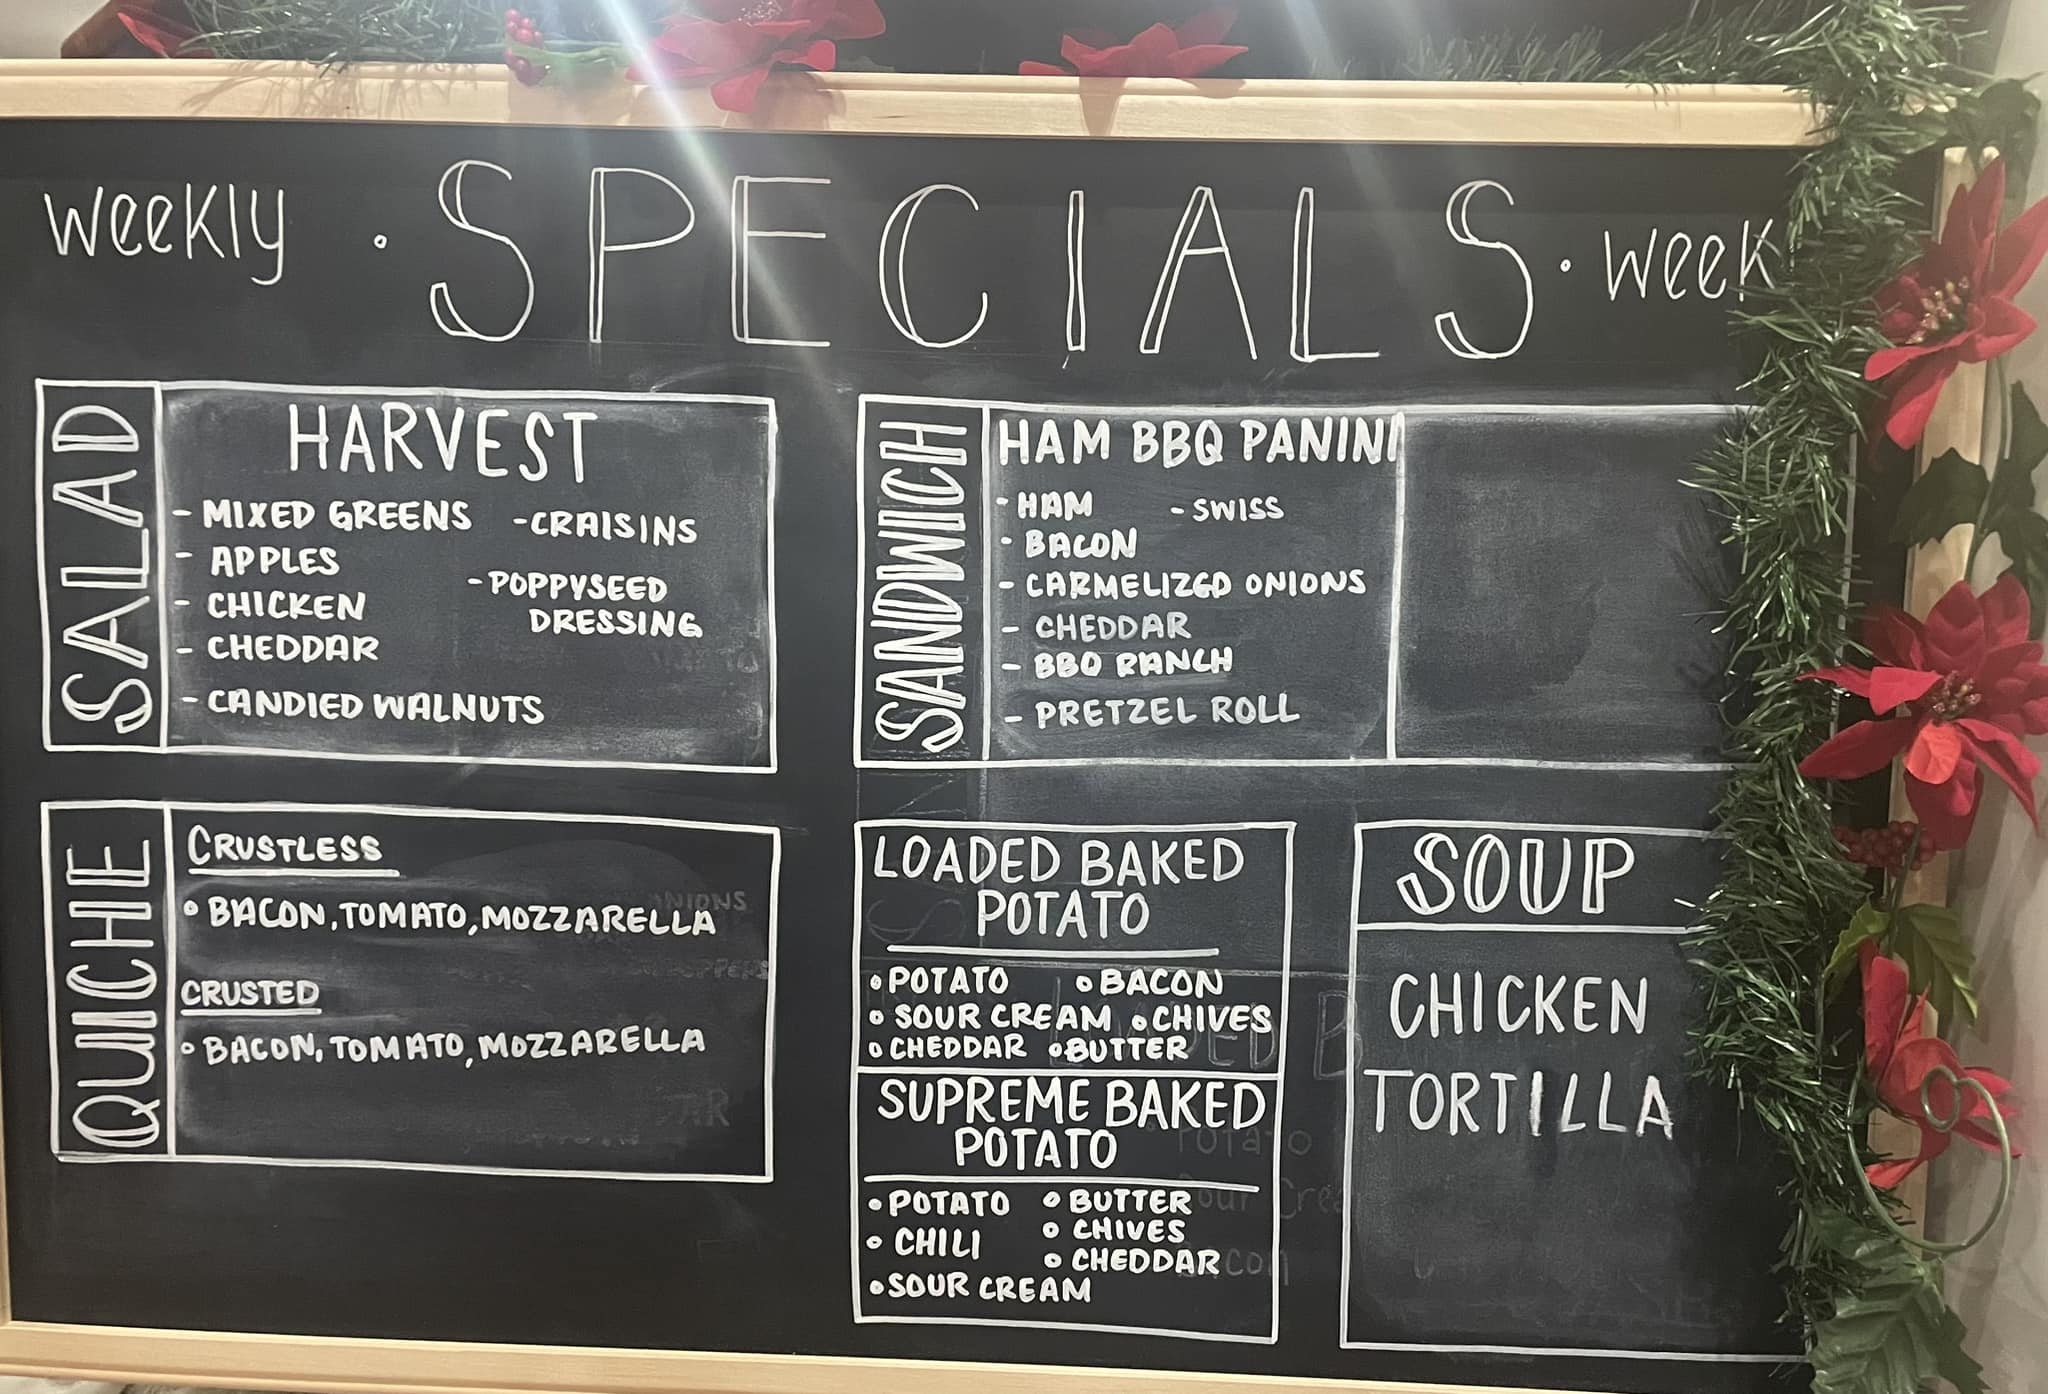 weekly · SPECIALS · week
SALAD
HARVEST
- MIXED GREENS
- APPLES
- CHICKEN
- CHEDDAR
- CANDIED WALNUTS
- CRAISINS
- POPPYSEED
DRESSING
SANDWICH
HAM BBQ PANINI
- HAM
- BACON
- CARMELIZED ONIONS
- CHEDDAR
- BBQ RANCH
- PRETZEL ROLL
- SWISS
QUICHE
CRUSTLESS
• BACON, TOMATO, MOZZARELLA
CRUSTED
• BACON, TOMATO, MOZZARELLA
LOADED BAKED
POTATO
• POTATO • BACON
• SOUR CREAM • CHIVES
• CHEDDAR • BUTTER
SUPREME BAKED
POTATO
• POTATO
• CHILI
• SOUR CREAM
• BUTTER
• CHIVES
• CHEDDAR
SOUP
CHICKEN
TORTILLA